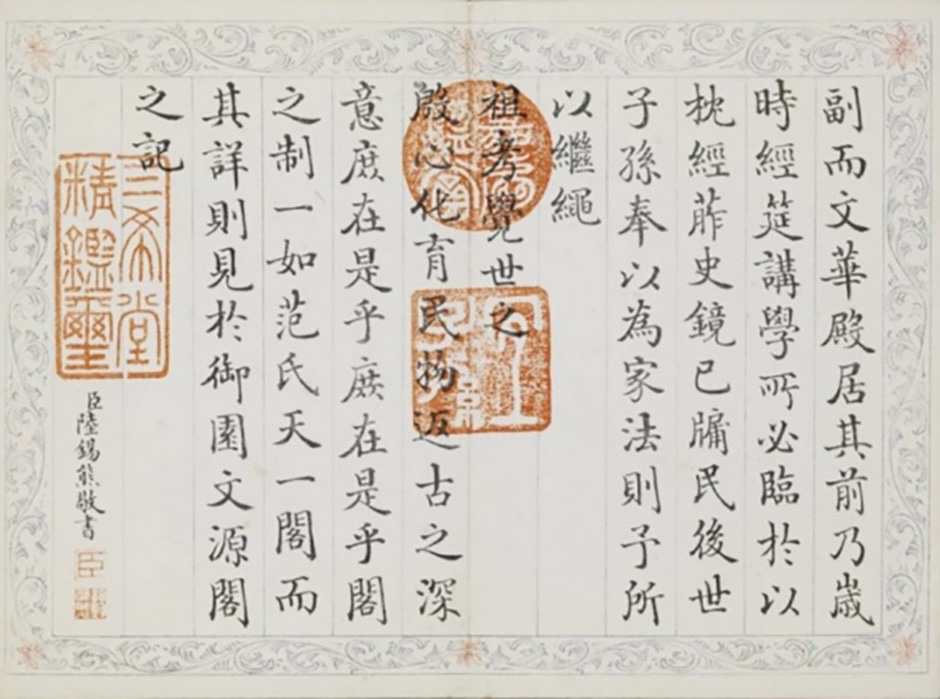 副而文華殿居其前乃歳
時經筵講學所必臨於以
枕經葄史鏡已牖民後世
子孫奉以為家法則予所
以繼繩
祖考覺世之
殷心化育民物返古之深
意庶在是乎庶在是乎閣
之制一如范氏天一閣而
其詳則見於御園文源閣
之記
三希堂
精鑑璽
宜子孫
臣陸錫熊敬書
臣